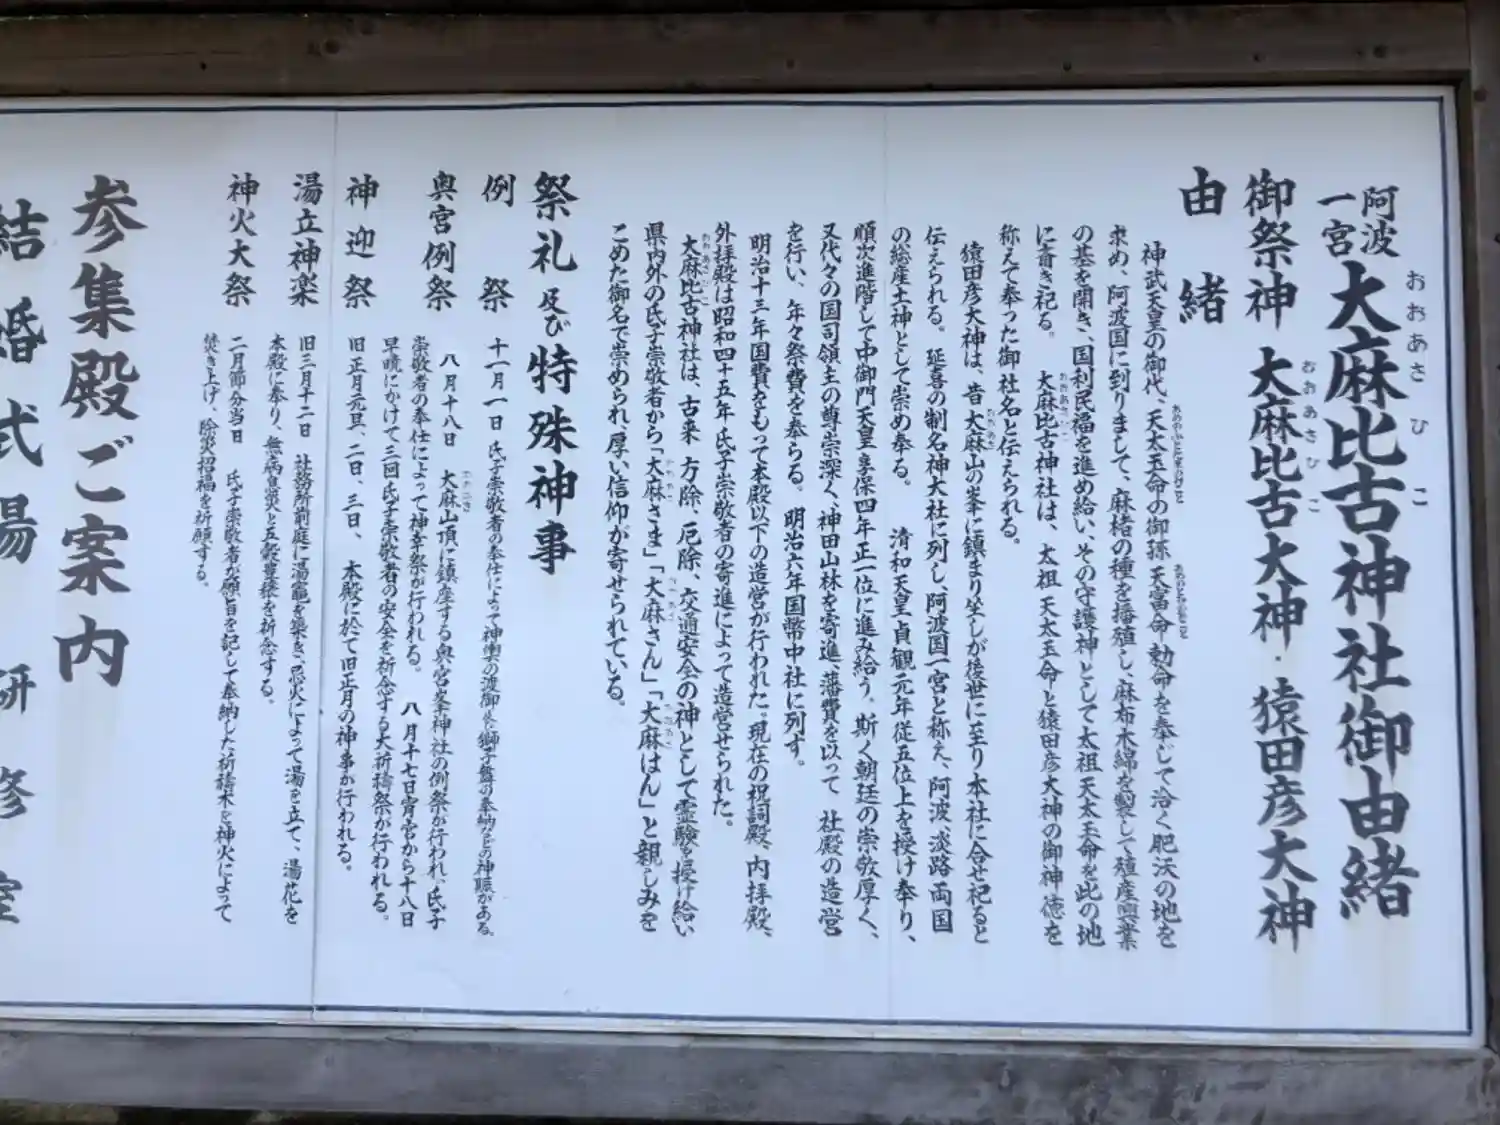 阿波一宮 大麻比古神社御由緒
おおあさひこ
御祭神 大麻比古大神・猿田彦大神
おおあさひこ
由緒
神武天皇の御代、天太玉命の御孫 天富命 勅命を奉じて洽く肥沃の地を
求め、阿波国に到りまして、麻楮の種を播殖し、麻布木綿を製して殖産興業
の基を開き、国利民福を進め給い、その守護神として太祖天太玉命を此の地
に斎き祀る。 大麻比古神社は、太祖 天太玉命と猿田彦大神の御神徳を
称えて奉った御社名と伝えられる。
猿田彦大神は、昔 大麻山の峯に鎮まり坐しが後世に至り本社に合せ祀ると
伝えられる。 延喜の制名神大社に列し、阿波国一宮と称え、阿波、淡路両国
の総産土神として崇め奉る。 清和天皇 貞観元年従五位上を授け奉り、
順次進階して中御門天皇 享保四年正一位に進み給う。斯く朝廷の崇敬厚く、
又代々の国司領主の尊崇深く、神田山林を寄進、藩費を以って、社殿の造営
を行い、年々祭費を奉らる。 明治六年国幣中社に列す。
明治十三年国費をもって本殿以下の造営が行われた。現在の祝詞殿、内拝殿、
外拝殿は昭和四十五年 氏子崇敬者の寄進によって造営せられた。
大麻比古神社は、古来 方除、厄除、交通安全の神として霊験を授け給い
県内外の氏子崇敬者から「大麻さま」「大麻さん」「大麻はん」と親しみを
こめた御名で崇められ厚い信仰が寄せられている。
祭礼及び特殊神事
例祭 十一月一日 氏子崇敬者の奉仕によって神輿の渡御並に獅子舞の奉納などの神賑がある。
奥宮例祭 八月十八日 大麻山頂に鎮座する奥宮峯神社の例祭が行われ、氏子
崇敬者の奉仕によって神幸祭が行われる。 八月十七日宵宮から十八日
早暁にかけて三回 氏子崇敬者の安全を祈念する大祈祷祭が行われる。
神迎祭 旧正月元旦、二日、三日、 本殿に於て旧正月の神事が行われる。
湯立神楽 旧三月十二日 社務所前庭に湯竈を築き、忌火によって湯を立て、湯花を
本殿に奉り、無病息災と五穀豊穣を祈念する。
神火大祭 二月節分当日 氏子崇敬者が願旨を記して奉納した祈祷木を神火によって
焚き上げ、除災招福を祈願する。
参集殿ご案内
結婚式場 研修室